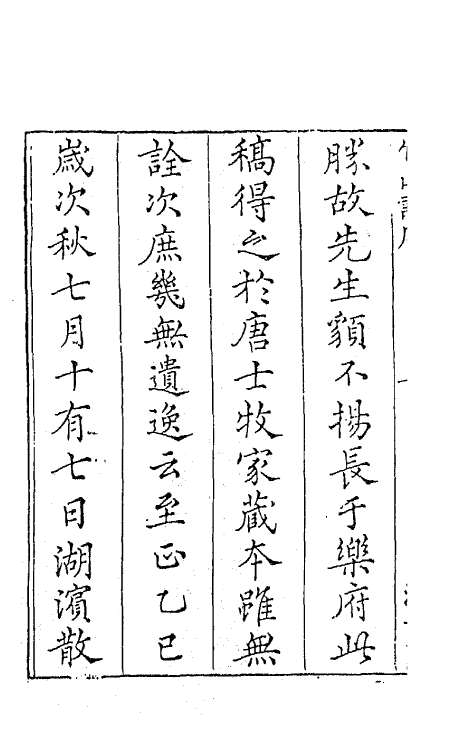 勝故先生貌不揚長于樂府此
稿得之於唐士牧家藏本雖無
詮次庶幾無遺逸云至正乙巳
歲次秋七月十有七日湖濱散